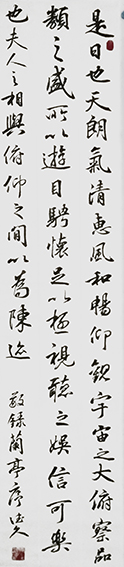 是日也天朗氣清惠風和暢仰觀宇宙之大俯察品
類之盛所以遊目騁懷足以極視聽之娛信可樂
也夫人之相與俯仰之間以為陳迹 敬錄蘭亭序